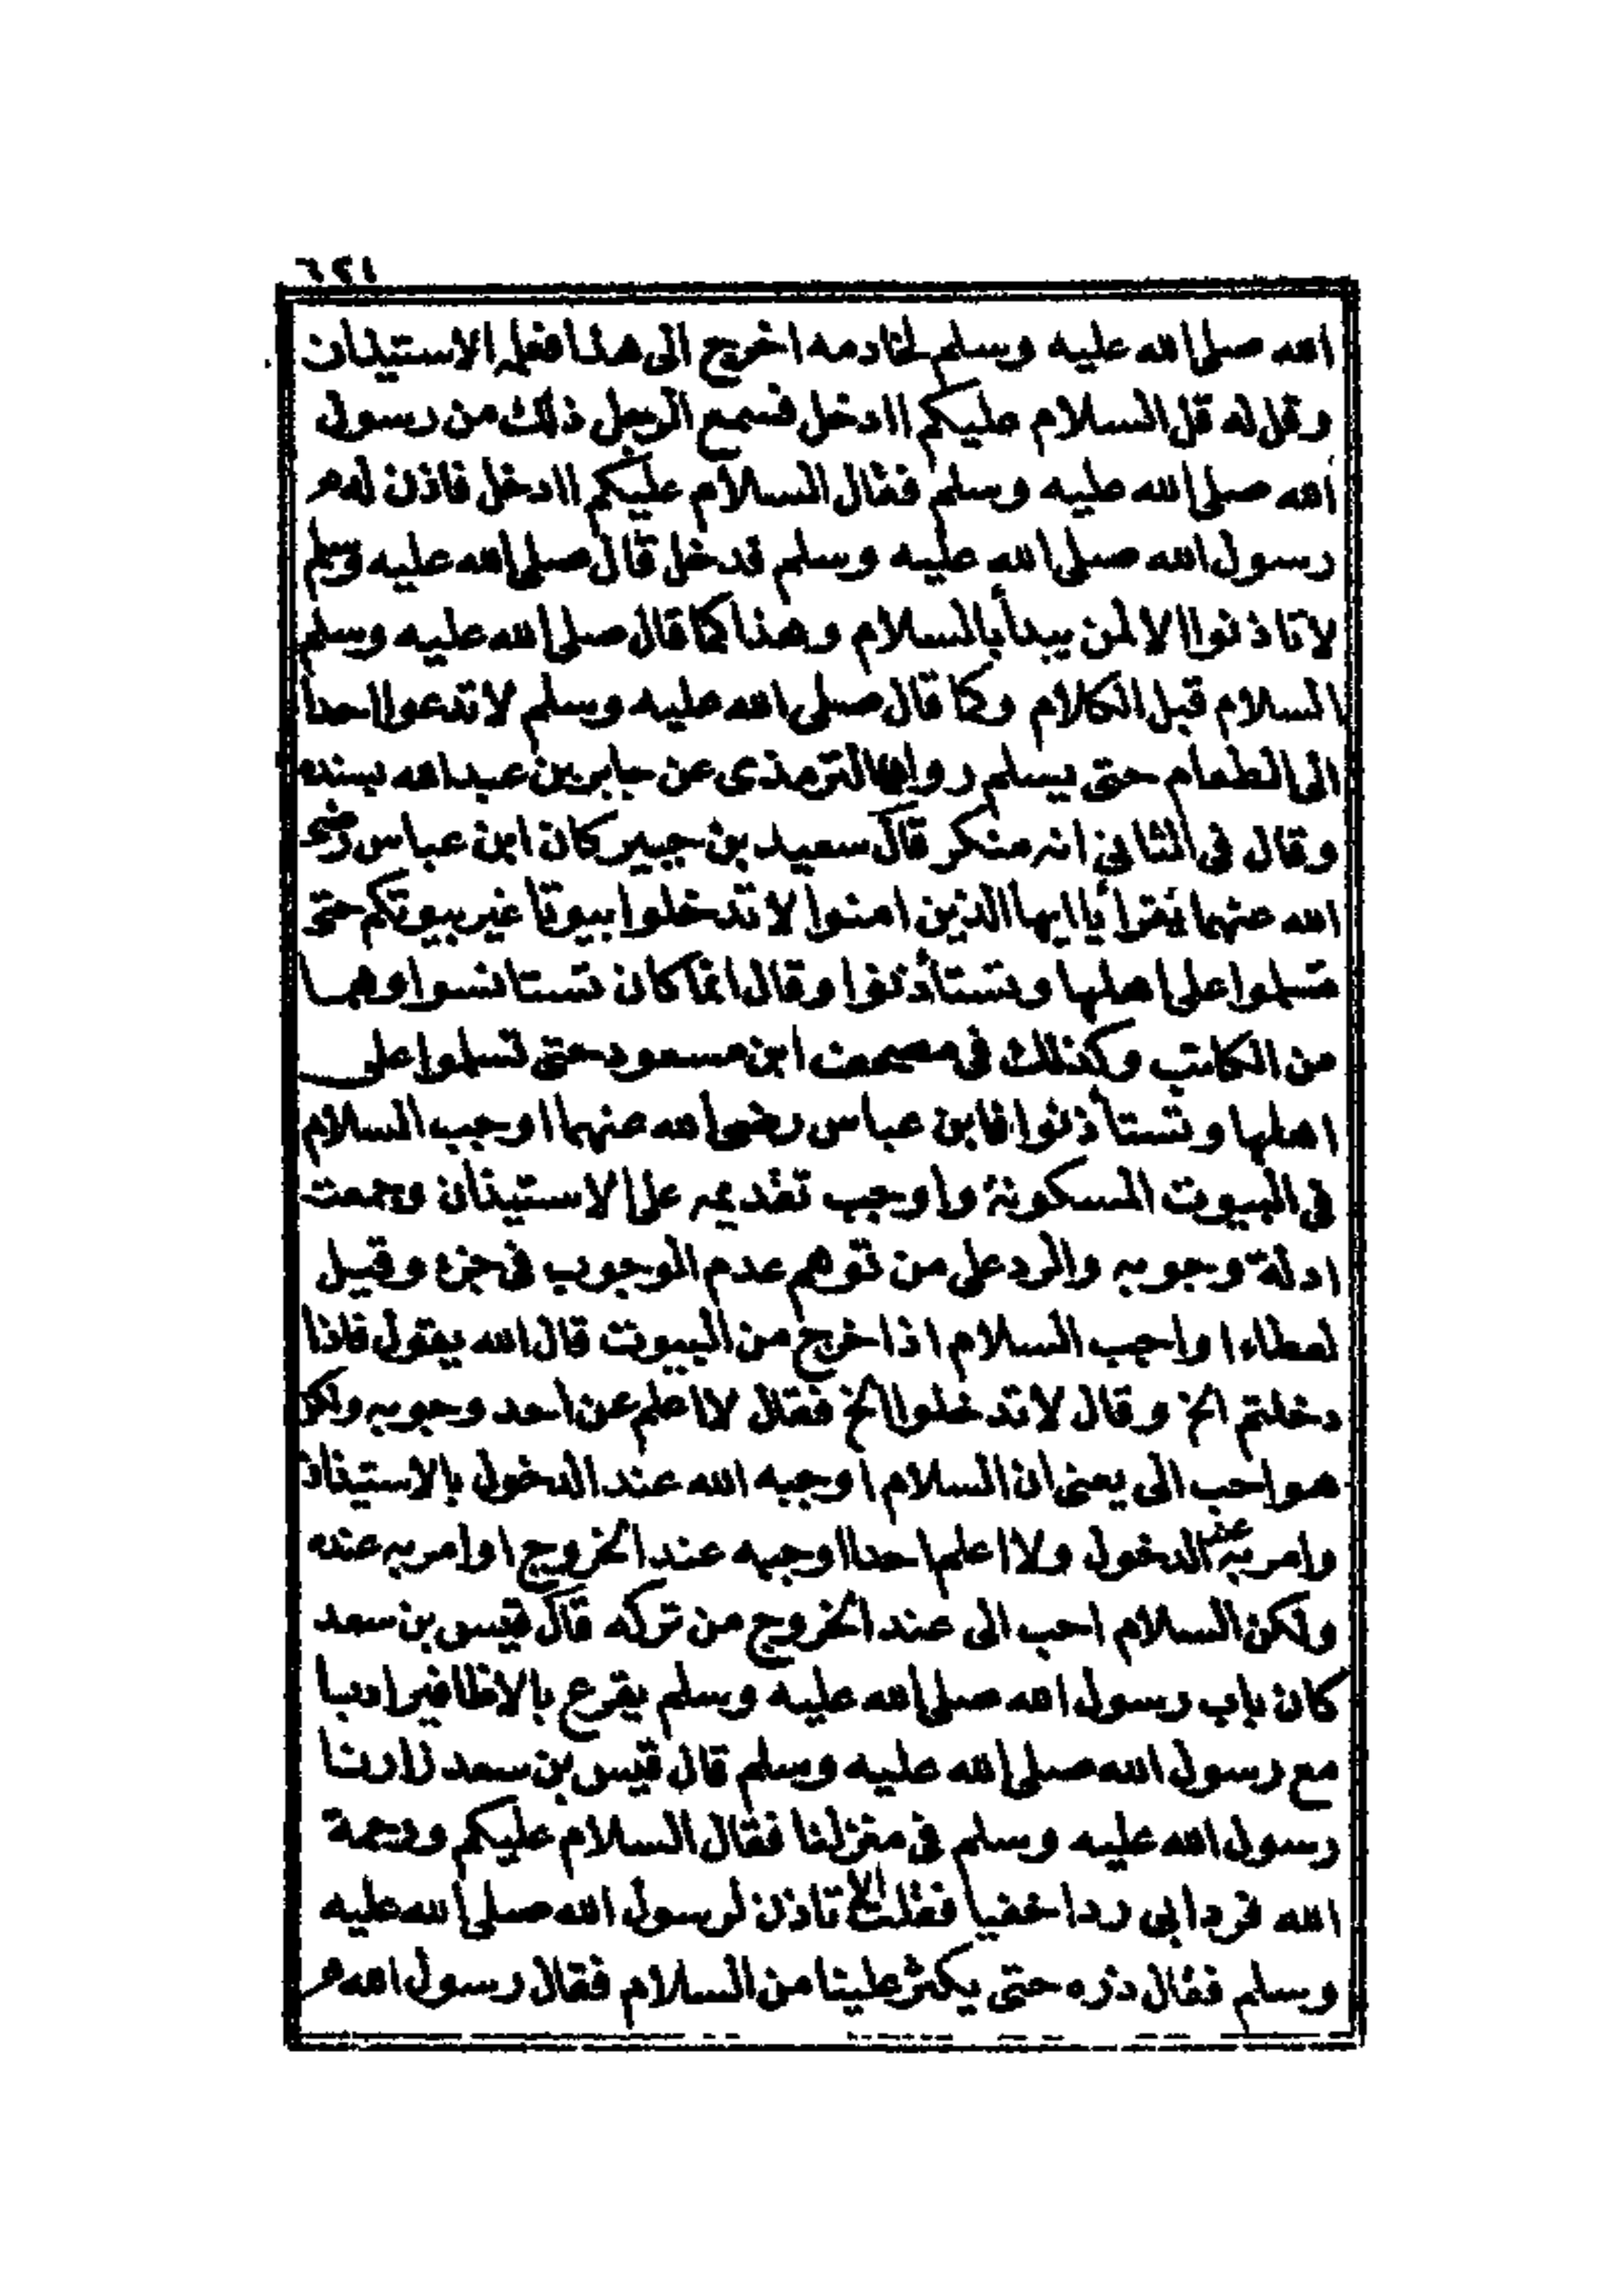 ٦٢١
الله صلى الله عليه وسلم لخادمه اخرج الى هذا فعلمه الاستيذان
وقل له قل السلام عليكم اادخل فسمع الرجل ذلك من رسول
الله صلى الله عليه وسلم فقال السلام عليكم اادخل فاذن له
رسول الله صلى الله عليه وسلم فدخل قال صلى الله عليه وسلم
لا تاذنوا الا لمن يبدأ بالسلام وهذا كما قال صلى الله عليه وسلم
السلام قبل الكلام وكما قال صلى الله عليه وسلم لا تدعوا احدا
الى الطعام حتى يسلم رواهما الترمذى عن جابر بن عبد الله بسنده
وقال فى الثانى انه منكر قال سعيد بن جبير كان ابن عباس رضى
الله عنهما يقرأ يا ايها الذين امنوا لا تدخلوا بيوتا غير بيوتكم حتى
تسلموا على اهلها وتستأذنوا وقال انما كان تستانسوا وهما
من الكاتب وكذلك فى مصحف ابن مسعود حتى تسلموا على
اهلها وتستأذنوا فابن عباس رضى الله عنهما اوجب السلام
فى البيوت المسكونة واوجب تقديمه على الاستيذان وجمعت
ادلة وجوبه والرد على من توهم عدم الوجوب فى جزء وقيل
لعطاء اواجب السلام اذا خرج من البيوت قال الله يقول فاذا
دخلتم الخ وقال لا تدخلوا الخ فقال لا اعلم عن احد وجوبه ولكن
هو احب الى يعنى ان السلام اوجبه الله عند الدخول بالاستيذان
وامر به عند الدخول ولا اعلم احدا اوجبه عند الخروج او امر به عنده
ولكن السلام احب الى عند الخروج من تركه قال قيس بن سعد
كان باب رسول الله صلى الله عليه وسلم يقرع بالاظافير ادبا
مع رسول الله صلى الله عليه وسلم قال قيس بن سعد زارنا
رسول الله عليه وسلم فى منزلنا فقال السلام عليكم ورحمة
الله فرد ابى ردا خفيا فقلت الا تاذن لرسول الله صلى الله عليه
وسلم فقال ذره حتى يكثر علينا من السلام فقال رسول الله